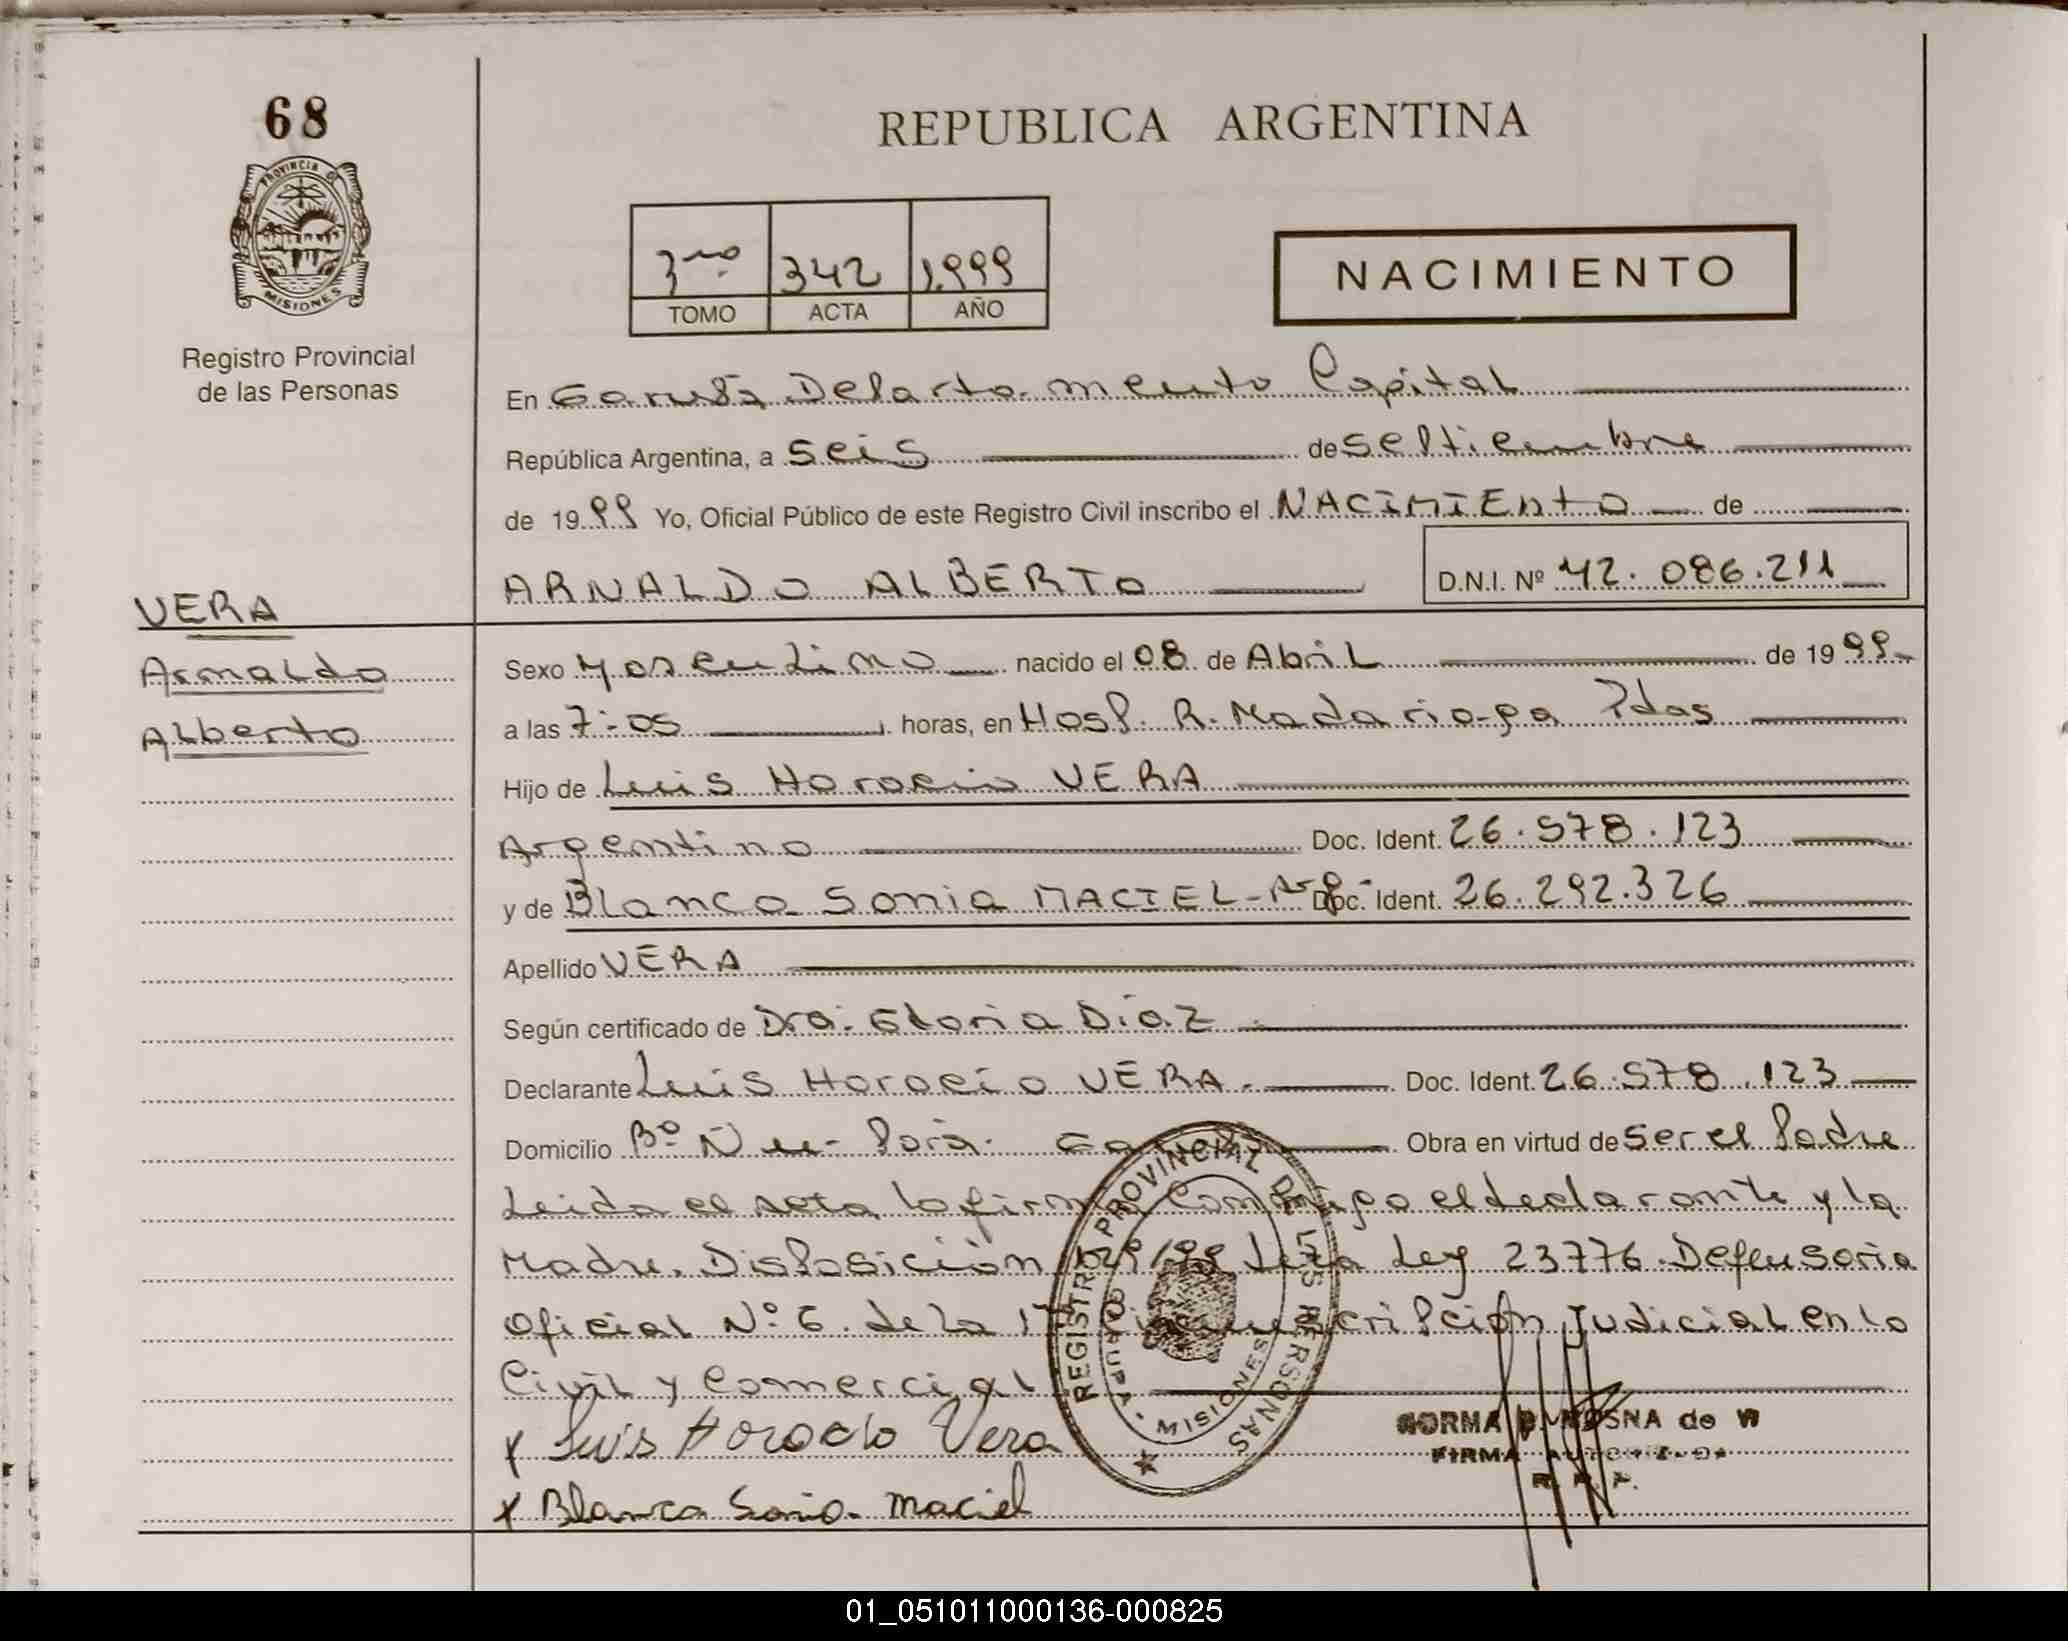 68
REPUBLICA ARGENTINA
PROVINCIA DE
MISIONES
3ro 342 1.999
TOMO ACTA AÑO
NACIMIENTO
Registro Provincial
de las Personas
En Garupá Departamento Capital
República Argentina, a seis de septiembre
de 1999 Yo, Oficial Público de este Registro Civil inscribo el NACIMIENTO de
ARNALDO ALBERTO D.N.I. Nº 42.086.211
VERA
Arnaldo
Alberto
Sexo Masculino nacido el 08 de Abril de 1999
a las 7:05 horas, en Hosp. R. Madariaga Pdas
Hijo de Luis Horacio VERA
Argentino Doc. Ident. 26.578.123
y de Blanca Sonia MACIEL - Arg. Doc. Ident. 26.292.326
Apellido VERA
Según certificado de Dra. Gloria Díaz
Declarante Luis Horacio VERA. Doc. Ident. 26.578.123
Domicilio Bº Ñu-Porá. Obra en virtud de ser el Padre
Leida el acta la firma Conmigo el declarante y la
Madre. Disposición Ley 23776. Defensoria
Oficial Nº 6 de la 1ª Circunscripción Judicial en lo
Civil y Comercial
x Luis Horacio Vera
x Blanca Sonia Maciel
REGISTRO PROVINCIAL DE LAS PERSONAS
GARUPA
MISIONES
NORMA de W
FIRMA AUTORIZADA
R. P. P.
01_051011000136-000825